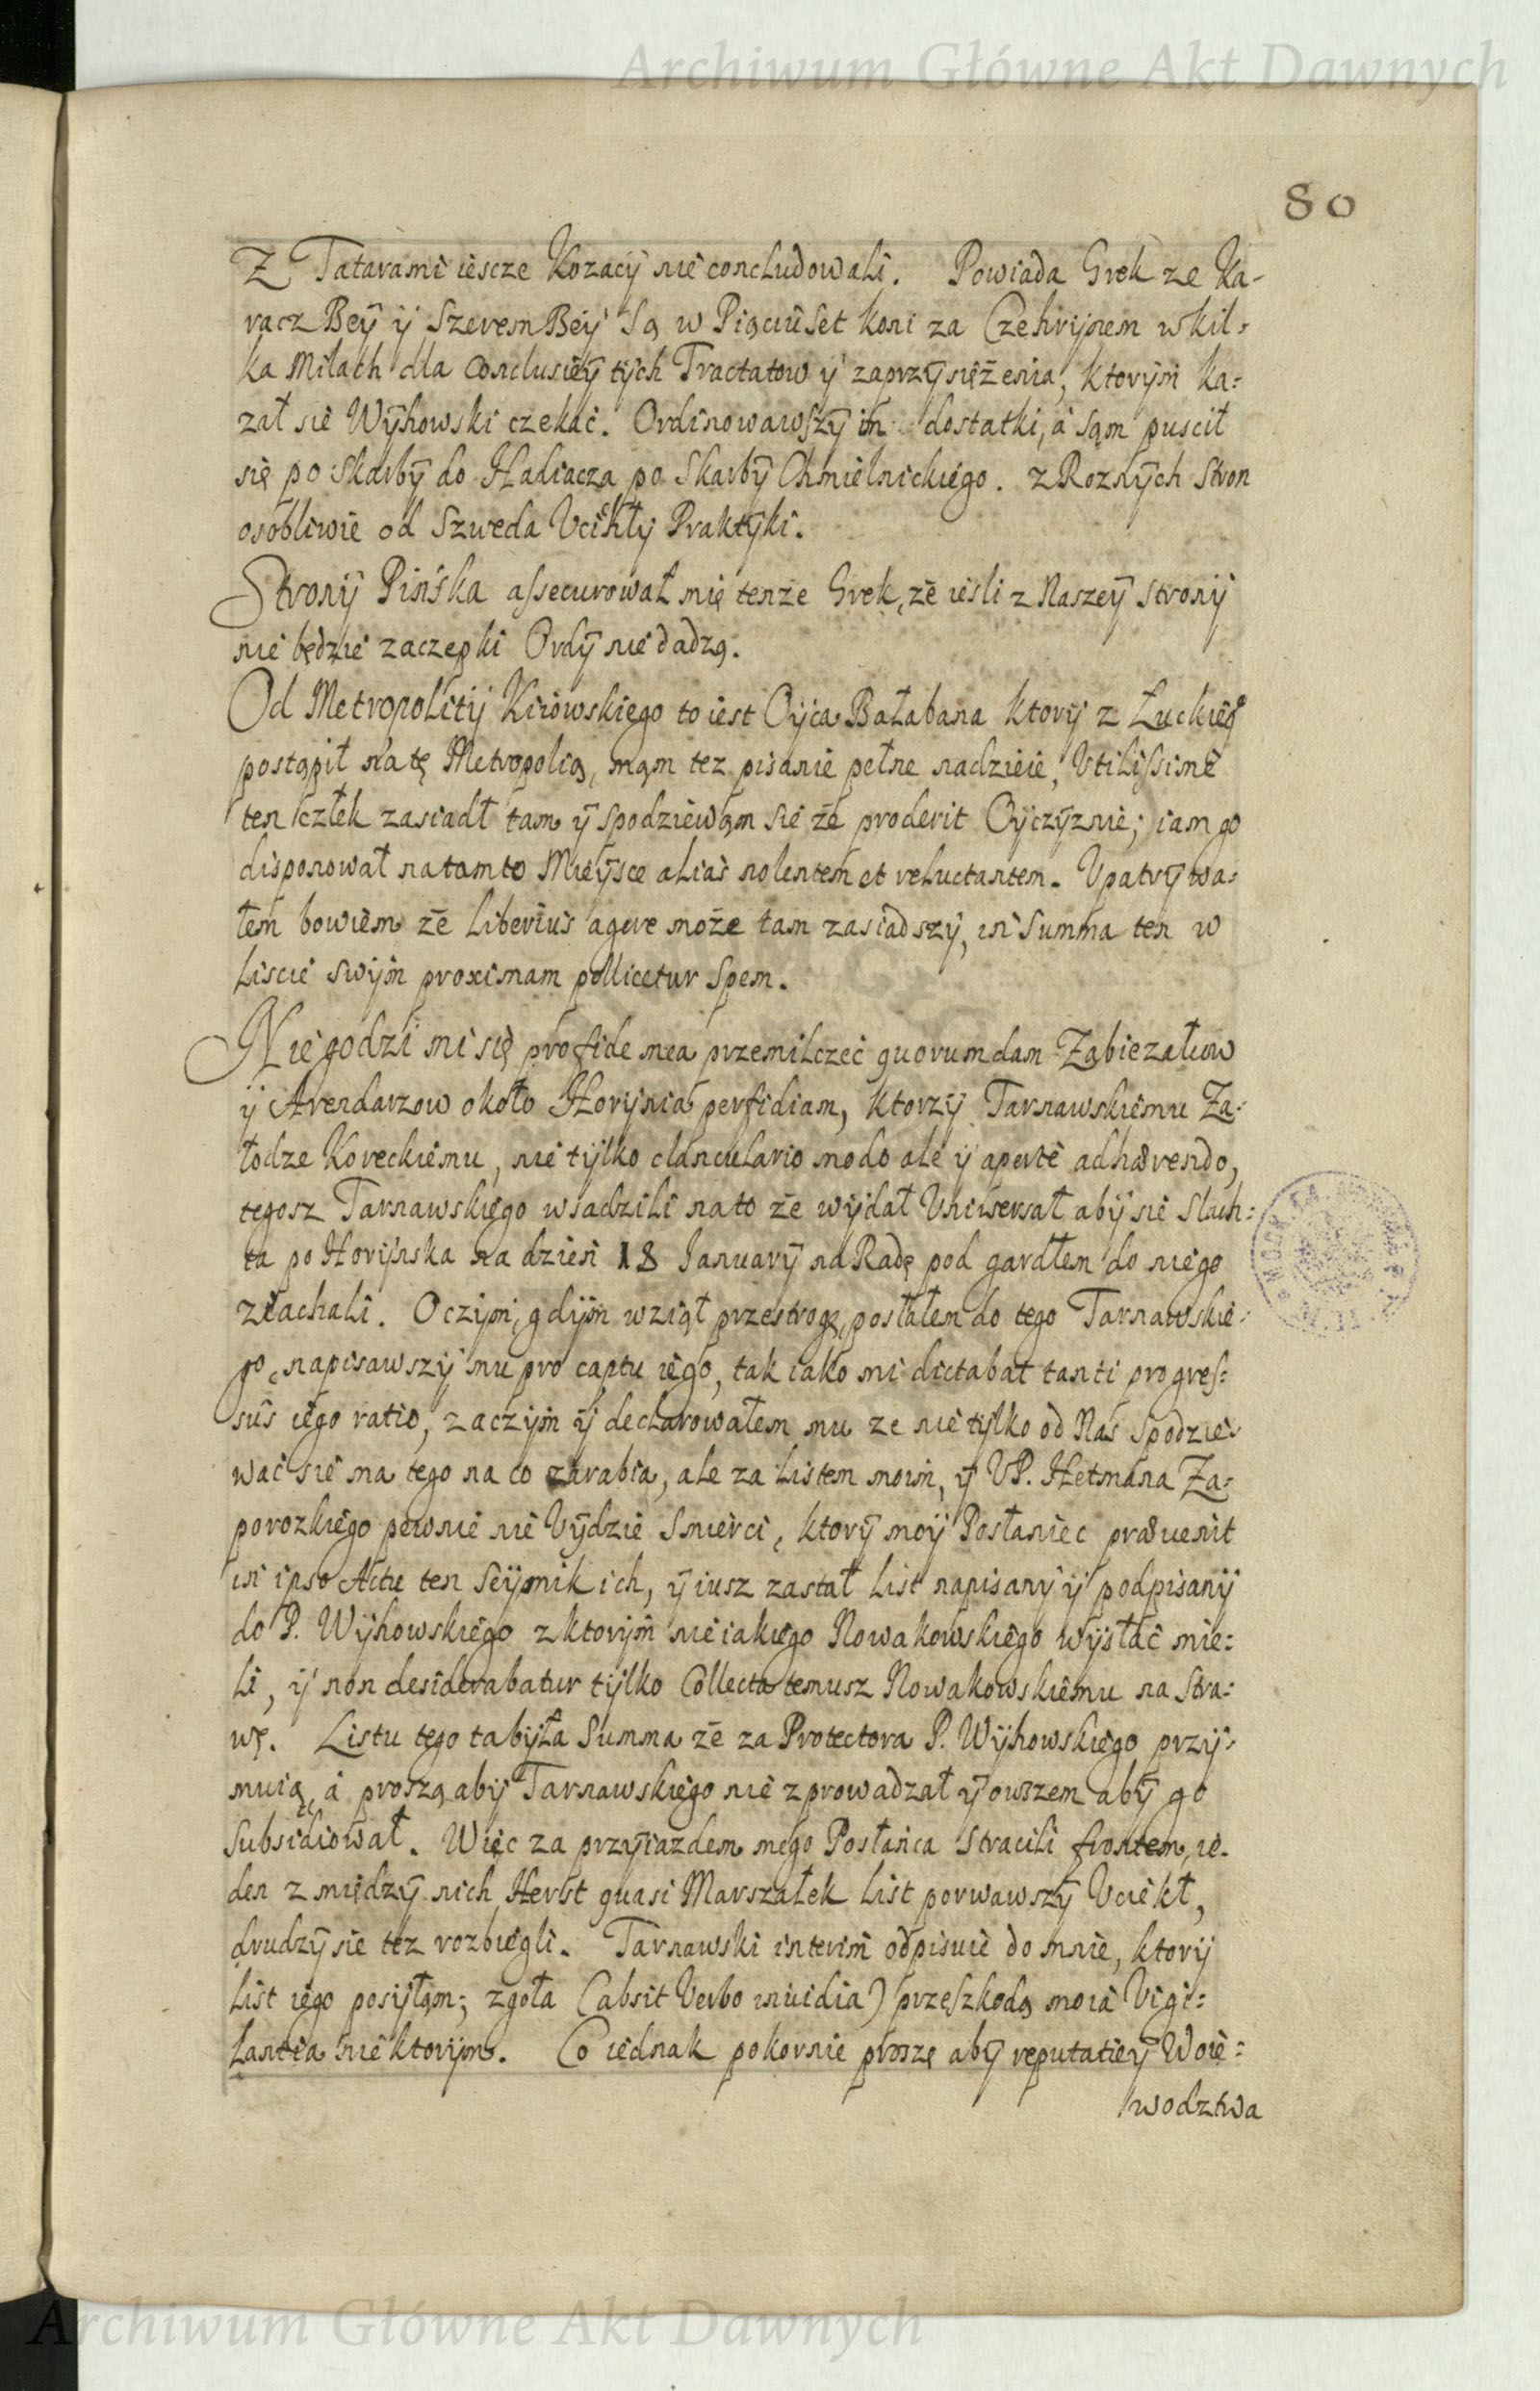 Archiwum Główne Akt Dawnych
80
Z Tatarami iescze Kozacÿ nie concludowali. Powiada Grek ze Ka-
racz Beÿ ÿ Szerem Beÿ Są w Piąciuset koni za Czehrÿnem w kil-
ka Milach dla Conclusieÿ tÿch Tractatow ÿ zaprzÿsiężenia, ktorÿm ka-
zał sie Wÿhowski czekać. Ordinowawszÿ im dostatki, á sąm puscił
się po Skarbÿ do Hadiacza po Skarbÿ Chmielnickiego. z Roznÿch Stron
osobliwie od Szweda Vcichłÿ Praktÿki.
Stronÿ Pińska assecurował mię tenże Grek, że iesli z Naszeÿ Stronÿ
nie będzie zaczepki Ordÿ nie dadzą.
Od Metropolitÿ Kiiowskiego to iest Oÿca Bałabana ktorÿ z Łuckieg°
postąpił na tę Metropolią, mąm tez pisanie pełne nadzieie, Vtilissime
ten człek zasiadł tam ÿ spodziewąm sie że proderit Oÿczÿznie; iam go
disponował na tamto Mieÿsce alias nolentem et reluctantem. Vpatrÿwa-
łem bowiem że liberius agere może tam zasiadszÿ, in Summa ten w
Liscie swÿm proximam pollicetur Spem.
Nie godzi mi się pro fide mea przemilczeć quorumdam Zabiezałow
ÿ Arendarzow około Horÿnia perfidiam, ktorzÿ Tarnawskiemu Za-
łodze Koreckiemu, nie tÿlko clanculario modo ale ÿ aperte adhærendo,
tegosz Tarnawskiego wsadzili na to że wÿdał Vniwersał abÿ sie Slach-
ta po Horÿnska na dzien 18 Ianuarÿ na Radę pod gardłem do niego
ziachali. O czÿm, gdÿm wziął przestrogę, posłałem do tego Tarnawskie-
go, napisawszÿ mu pro captu iego, tak iako mi dictabat tanti progres-
sus iego ratio, zaczÿm ÿ declarowałem mu ze nie tÿlko od Nas spodzie-
wać sie ma tego na co zarabia, ale za listem moim, ÿ VP. Hetmana Za-
porozkiego pewnie nie Vÿdzie Smierci, ktorÿ moÿ Posłaniec præuenit
in ipso Actu ten Seÿmik ich, ÿ iusz zastał list napisanÿ ÿ podpisanÿ
do P. Wÿhowskiego z ktorÿm nieiakiego Nowakowskiego wÿsłać mie-
li, ÿ non desiderabatur tÿlko Collecta temusz Nowakowskiemu na Stra-
wę. Listu tego ta bÿła Summa że za Protectora P. Wÿhowskiego przÿ-
muią, á proszą abÿ Tarnawskiego nie zprowadzał ÿ owszem abÿ go
subsidiował. Więc za przÿiazdem mego Posłańca Stracili frontem, ie-
den z międzÿ nich Herbst quasi Marszałek list porwawszÿ Vciekł,
drudzÿ sie tez rozbiegli. Tarnawski interim odpisuie do mnie, ktorÿ
list iego posÿłąm; zgoła (absit Verbo inuidia) przeszkodą moia Vigi-
lantia niektorÿm. Co iednak pokornie proszę abÿ reputatieÿ Woie-
wodztwa
Archiwum Główne Akt Dawnych